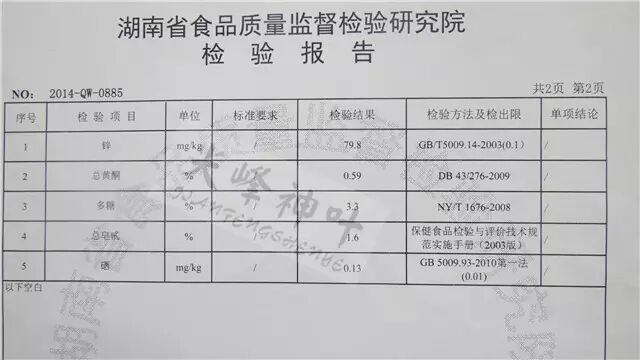 湖南省食品质量监督检验研究院
检 验 报 告
NO: 2014-QW-0885 共2页 第2页
序号 检 验 项 目 单位 标准要求 检验结果 检验方法及检出限 单项结论
1 锌 mg/kg / 79.8 GB/T5009.14-2003(0.1) /
2 总黄酮 % / 0.59 DB 43/276-2009 /
3 多糖 % / 3.3 NY/T 1676-2008 /
4 总皂甙 % / 1.6 保健食品检验与评价技术规 /
范实施手册(2003版)
5 硒 mg/kg / 0.13 GB 5009.93-2010第一法 /
(0.01)
以下空白
尖峰神叶